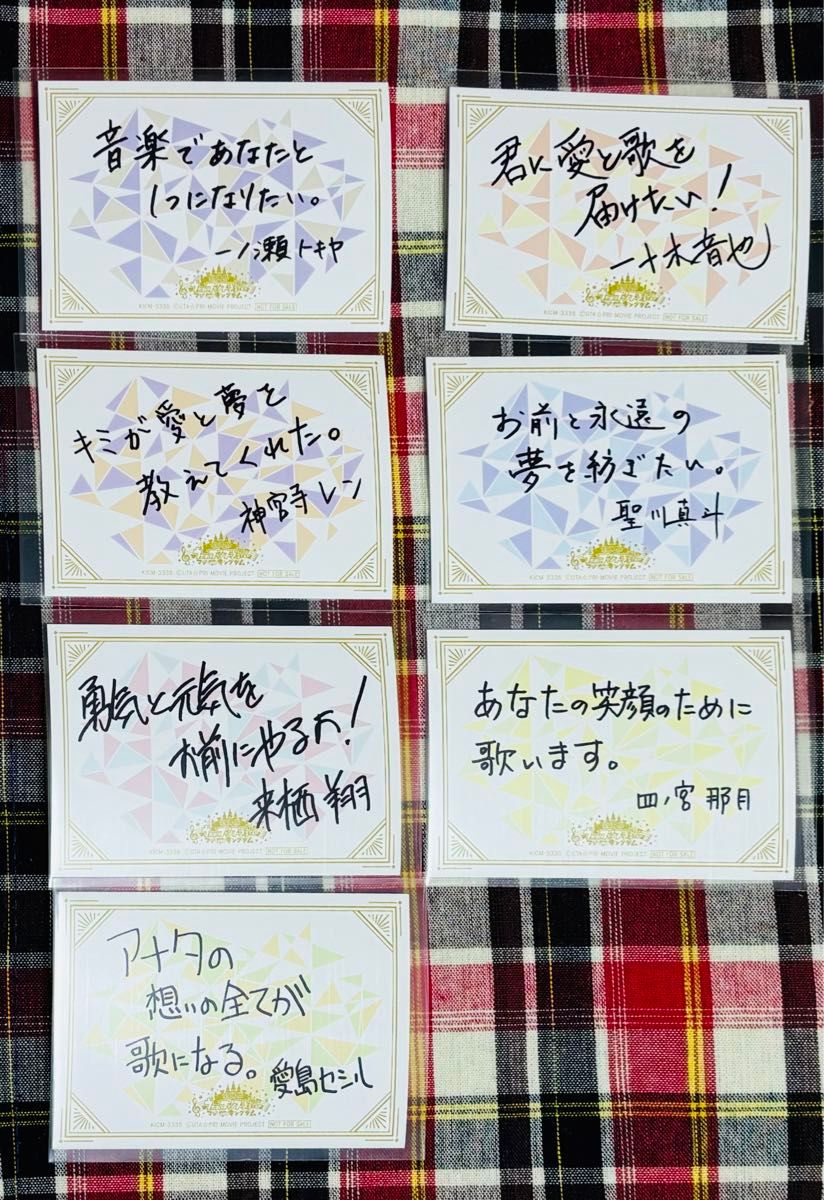 音楽であなたと
1つになりたい。
一ノ瀬トキヤ
KICM-3335 ©UTA☆PRI MOVIE PROJECT NOT FOR SALE
君に愛と歌を
届けたい!
一十木音也
KICM-3335 ©UTA☆PRI MOVIE PROJECT NOT FOR SALE
キミが愛と夢を
教えてくれた。
神宮寺レン
KICM-3335 ©UTA☆PRI MOVIE PROJECT NOT FOR SALE
お前と永遠の
夢を紡ぎたい。
聖川真斗
KICM-3335 ©UTA☆PRI MOVIE PROJECT NOT FOR SALE
勇気と元気を
お前にやるよ!
来栖翔
KICM-3335 ©UTA☆PRI MOVIE PROJECT NOT FOR SALE
あなたの笑顔のために
歌います。
四ノ宮那月
KICM-3335 ©UTA☆PRI MOVIE PROJECT NOT FOR SALE
アナタの
想いの全てが
歌になる。
愛島セシル
KICM-3335 ©UTA☆PRI MOVIE PROJECT NOT FOR SALE